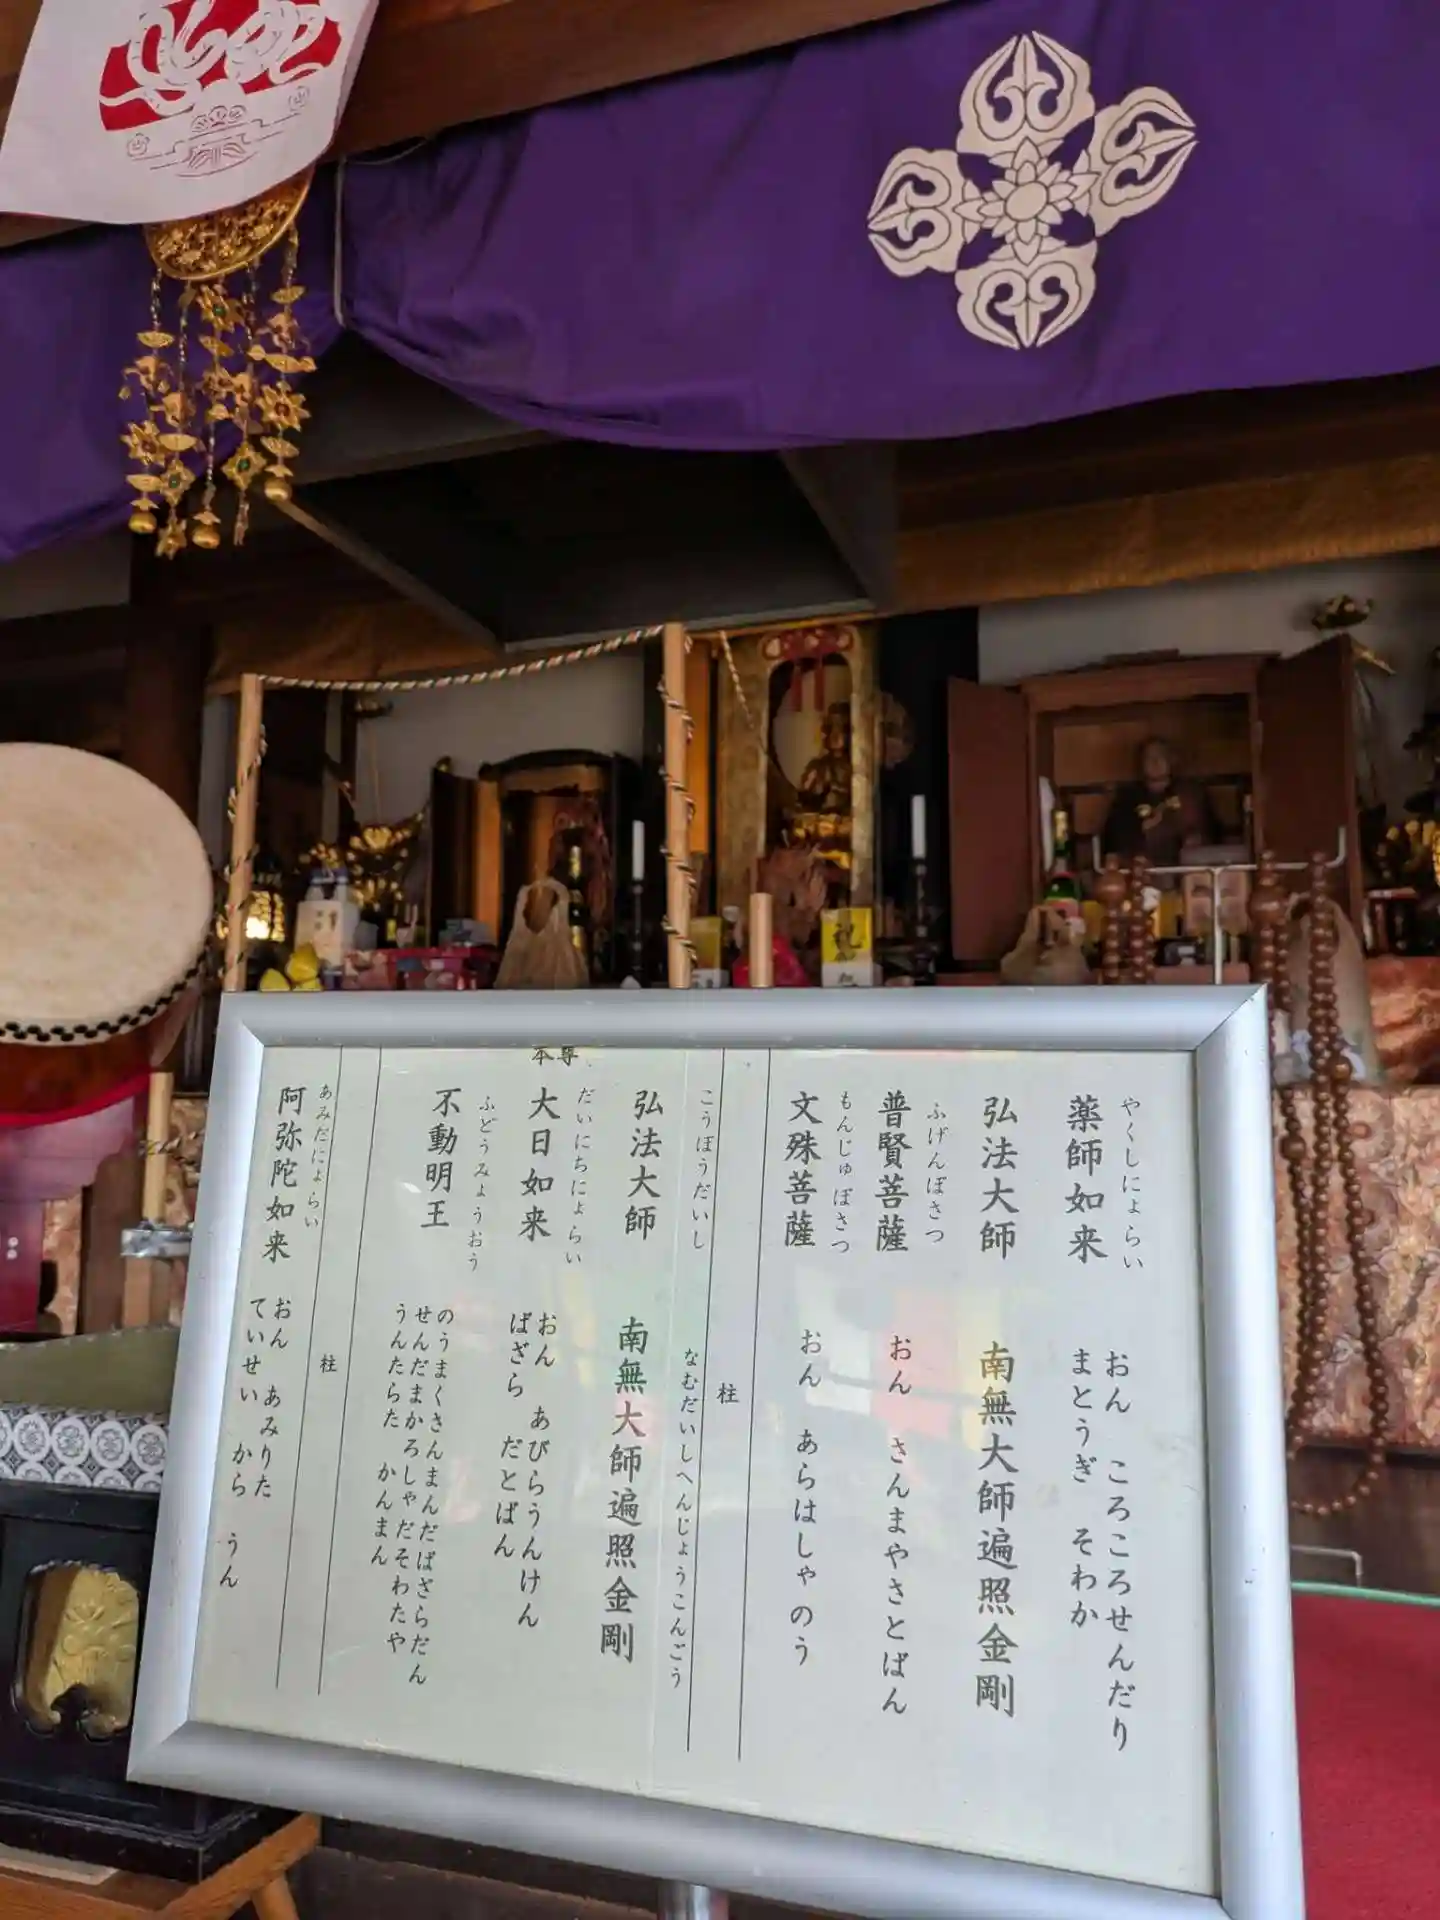 やくしにょらい
薬師如来
おん ころころせんだり
まとうぎ そわか
弘法大師
南無大師遍照金剛
ふげんぼさつ
普賢菩薩
おん さんまやさとばん
もんじゅぼさつ
文殊菩薩
おん あらはしゃのう
柱
こうぼうだいし
なむだいしへんじょうこんごう
弘法大師
南無大師遍照金剛
本尊
だいにちにょらい
大日如来
おん あびらうんけん
ばざら だとばん
ふどうみょうおう
不動明王
のうまくさんまんだばざらだん
せんだまかろしゃだそわたや
うんたらた かんまん
柱
あみだにょらい
阿弥陀如来
おん あみりた
ていせい から うん
祝